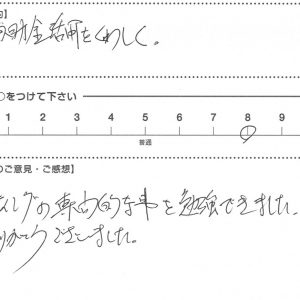 助金活用をくわしく。
○をつけて下さい
1 2 3 4 5 6 7 8 9
普通
のご意見・ご感想】
ングの専門的な事を勉強できました。
ございました。